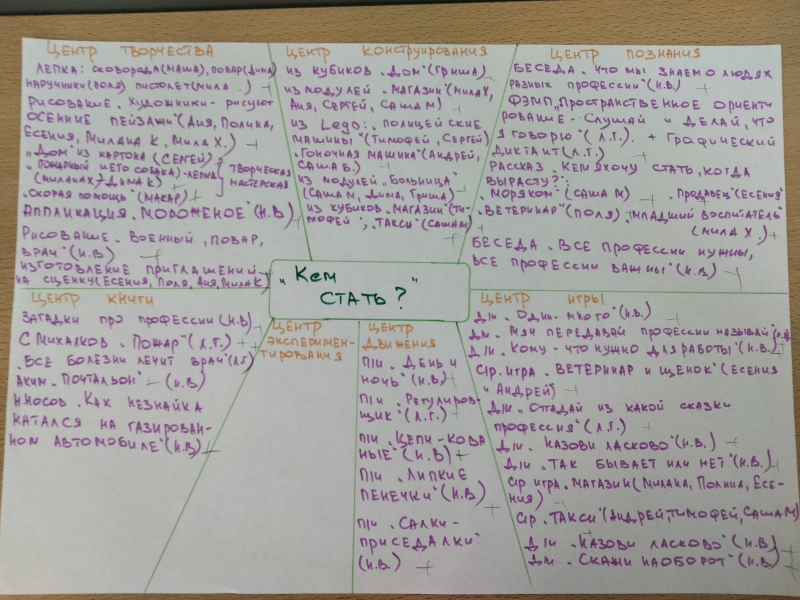 ЦЕНТР ТВОРЧЕСТВА
ЛЕПКА: СКОВОРОДА (МАША), ПОВАР (ДИМА)
НАРУЧНИКИ (ПОЛЯ) ПИСТОЛЕТ (МИЛА .)
РИСОВАНИЕ „ХУДОЖНИКИ - РИСУЮТ
ОСЕННИЕ ПЕЙЗАЖИ" (АИЯ, ПОЛИНА,
ЕСЕНИЯ, МИЛАНА К, МИЛА Х.)
„ДОМ" ИЗ КАРТОНА (СЕРГЕЙ)
„ПОЖАРНЫЙ И ЕГО СОБАКА" - ЛЕПКА
(МИЛАНА Х, ДИМА К)
„СКОРАЯ ПОМОЩЬ" (МАКАР)
ТВОРЧЕСКАЯ
МАСТЕРСКАЯ
АППЛИКАЦИЯ „МОРОЖЕНОЕ" (Н.В)
РИСОВАНИЕ „ВОЕННЫЙ, ПОВАР,
ВРАЧ" (Н.В)
ИЗГОТОВЛЕНИЕ ПРИГЛАШЕНИЙ
НА СЦЕНКУ (ЕСЕНИЯ, ПОЛЯ, АИЯ, МИЛА К)
ЦЕНТР КОНСТРУИРОВАНИЯ
ИЗ КУБИКОВ „ДОМ" (ГРИША)
ИЗ МОДУЛЕЙ „МАГАЗИН" (МИЛА Х,
АИЯ, СЕРГЕЙ, САША М)
ИЗ Lego: „ПОЛИЦЕЙСКИЕ
МАШИНЫ" (ТИМОФЕЙ, СЕРГЕЙ)
„ГОНОЧНАЯ МАШИНА" (АНДРЕЙ,
САША Б.)
ИЗ МОДУЛЕЙ „БОЛЬНИЦА"
(САША М, ДИМА, ГРИША)
ИЗ КУБИКОВ „МАГАЗИН" (ТИ-
МОФЕЙ", „ТАКСИ" (САША М)
ЦЕНТР ПОЗНАНИЯ
БЕСЕДА „ЧТО МЫ ЗНАЕМ О ЛЮДЯХ
РАЗНЫХ ПРОФЕССИЙ" (Н.В)
ФЭМП „ПРОСТРАНСТВЕННОЕ ОРИЕНТИ
РОВАНИЕ - СЛУШАЙ И ДЕЛАЙ, ЧТО
Я ГОВОРЮ" (Л.Г.) + ГРАФИЧЕСКИЙ
ДИКТАНТ (Л.Г.)
РАССКАЗ „КЕМ Я ХОЧУ СТАТЬ, КОГДА
ВЫРАСТУ?":
„МОРЯКОМ" (САША М) „ПРОДАВЕЦ" (ЕСЕНИЯ)
„ВЕТЕРИНАР" (ПОЛЯ) „МЛАДШИЙ ВОСПИТАТЕЛЬ"
(МИЛА Х.)
БЕСЕДА „ВСЕ ПРОФЕССИИ НУЖНЫ,
ВСЕ ПРОФЕССИИ ВАЖНЫ" (Н.В.)
„Кем
СТАТЬ?"
ЦЕНТР КНИГИ
ЗАГАДКИ ПРО ПРОФЕССИИ (Н.В)
С МИХАЛКОВ „ПОЖАР" (Л.Г.)
„ВСЕ БОЛЕЗНИ ЛЕЧИТ ВРАЧ" (Л.Г)
АКИМ „ПОЧТАЛЬОН" (Н.В)
Н.НОСОВ „КАК НЕЗНАЙКА
КАТАЛСЯ НА ГАЗИРОВАН-
НОМ АВТОМОБИЛЕ" (Н.В)
ЦЕНТР
ЭКСПЕРИМЕН-
ТИРОВАНИЯ
ЦЕНТР
ДВИЖЕНИЯ
П/И „ДЕНЬ И
НОЧЬ" (Н.В)
П/И „РЕГУЛИРОВ-
ЩИК" (Л.Г.)
П/И „ЦЕПИ-КОВА
НЫЕ" (Н.В)
П/И „ЛИПКИЕ
ПЕНЕЧКИ" (Н.В)
П/И „САЛКИ-
ПРИСЕДАЛКИ"
(Н.В.)
ЦЕНТР ИГРЫ
Д/И „ОДИН - МНОГО" (Н.В.)
Д/И „МЯЧ ПЕРЕДАВАЙ ПРОФЕССИИ НАЗЫВАЙ" (Н.В)
Д/И „КОМУ - ЧТО НУЖНО ДЛЯ РАБОТЫ" (Н.В.)
С/Р. ИГРА „ВЕТЕРИНАР И ЩЕНОК" (ЕСЕНИЯ
И АНДРЕЙ)
Д/И „ОТГАДАЙ ИЗ КАКОЙ СКАЗКИ
ПРОФЕССИЯ" (Л.Г.)
Д/И „НАЗОВИ ЛАСКОВО" (Н.В.)
Д/И „ТАК БЫВАЕТ ИЛИ НЕТ" (Н.В.)
С/Р ИГРА „МАГАЗИН (МИЛАНА, ПОЛИНА, ЕСЕ-
НИЯ)
С/Р „ТАКСИ" (АНДРЕЙ, ТИМОФЕЙ, САША М)
Д/И „НАЗОВИ ЛАСКОВО" (Н.В)
Д/И „СКАЖИ НАОБОРОТ" (Н.В.)